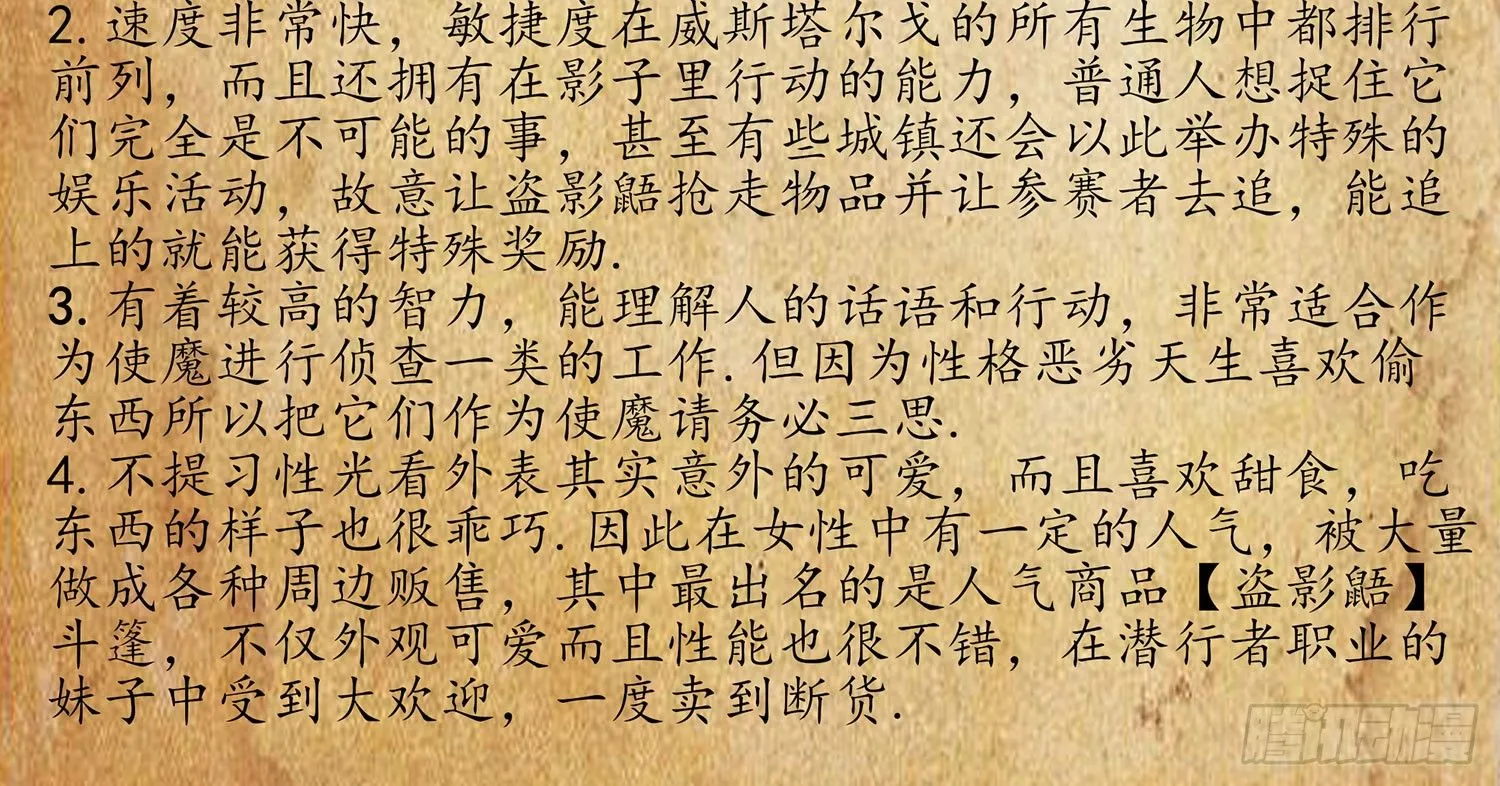 2. 速度非常快，敏捷度在威斯塔尔戈的所有生物中都排行
前列，而且还拥有在影子里行动的能力，普通人想捉住它
们完全是不可能的事，甚至有些城镇还会以此举办特殊的
娱乐活动，故意让盗影鼯抢走物品并让参赛者去追，能追
上的就能获得特殊奖励.
3. 有着较高的智力，能理解人的话语和行动，非常适合作
为使魔进行侦查一类的工作. 但因为性格恶劣天生喜欢偷
东西所以把它们作为使魔请务必三思.
4. 不提习性光看外表其实意外的可爱，而且喜欢甜食，吃
东西的样子也很乖巧. 因此在女性中有一定的人气，被大量
做成各种周边贩售，其中最出名的是人气商品【盗影鼯】
斗篷，不仅外观可爱而且性能也很不错，在潜行者职业的
妹子中受到大欢迎，一度卖到断货.
腾讯动漫